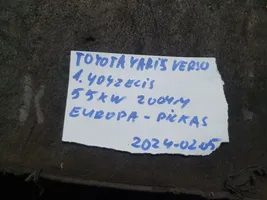 TOYOTA YARIS VERSO
1.4D4D
55KW 2004M
EUROPA - PILKAS
2024-02-05